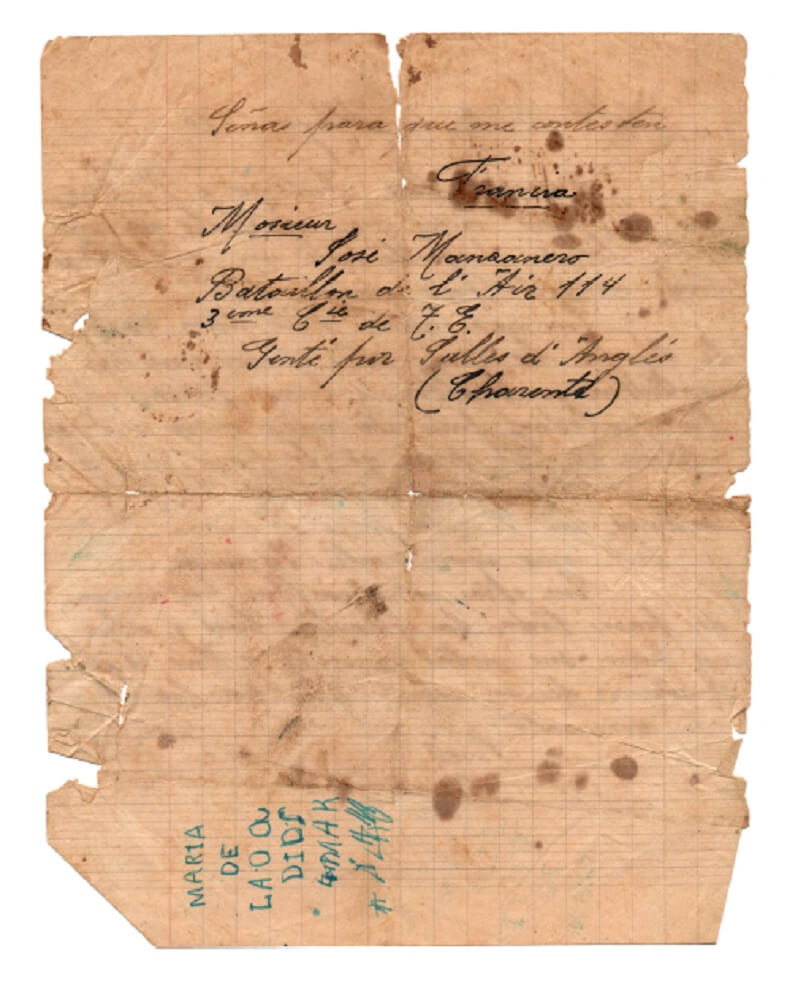 Señas para que me contesten
Francia
Mosieur
José Manzanero
Bataillon de l' Air 114
3ème Cie de T. E.
Genté por Salles d' Anglés
(Charente)
MARIA
DE
LA O
DIDI